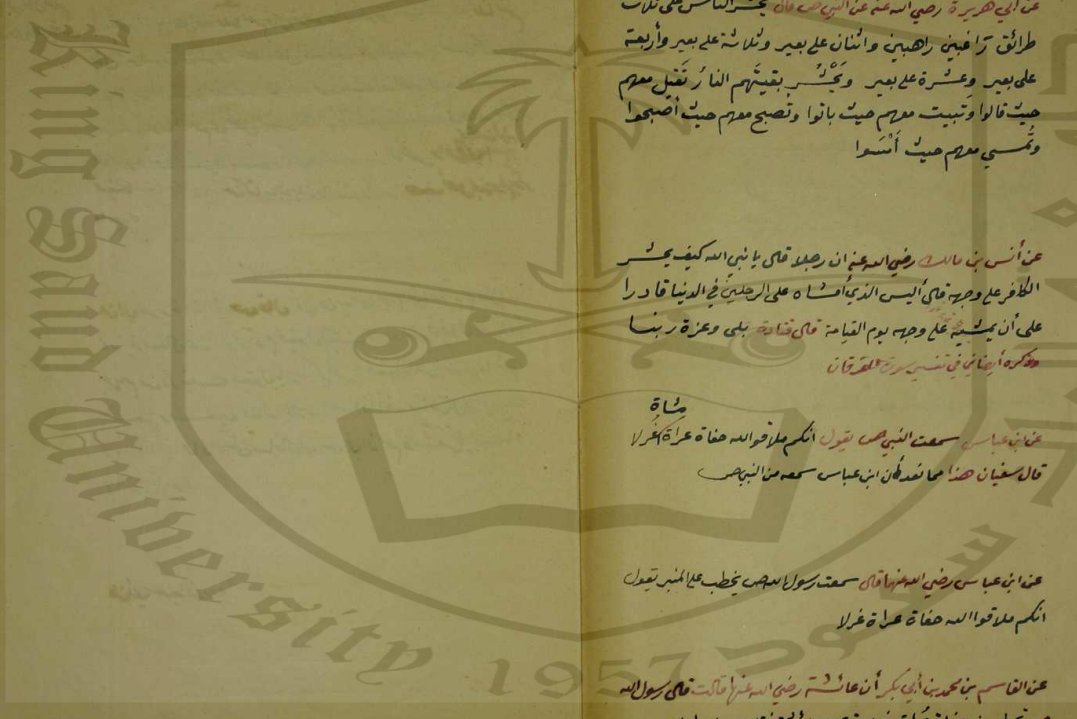 عن أبي هريرة رضي الله عنه عن النبي ص قال يحشر الناس على ثلاث
طرائق راغبين راهبين واثنان على بعير وثلاثة على بعير وأربعة
على بعير وعشرة على بعير ويَحْشُر بقيتَهم النارُ تَقيل معهم
حيث قالوا وتبيت معهم حيث باتوا وتصبح معهم حيث أصبحوا
وتُمسي معهم حيث أَمْسَوا
عن أنس بن مالك رضي الله عنه ان رجلا قال يا نبي الله كيف يحشر
الكافر على وجهه قال أليس الذي أمشاه على الرجلين في الدنيا قادرا
على أن يمشيه على وجهه يوم القيامة قال قتادة بلى وعزة ربنا
وذكره أيضا في تفسير سورة الفرقان
مشاة
عن ابن عباس سمعت النبي ص يقول انكم ملاقو الله حفاة عراة غُرلا
قال سفيان هذا مما نعد أن ابن عباس سمعه من النبي ص
عن ابن عباس رضي الله عنهما قال سمعت رسول الله ص يخطب على المنبر يقول
انكم ملاقوا الله حفاة عراة غرلا
عن القاسم بن محمد بن أبي بكر أن عائشة رضي الله عنها قالت قال رسول الله
King Saud University 1957
سعود